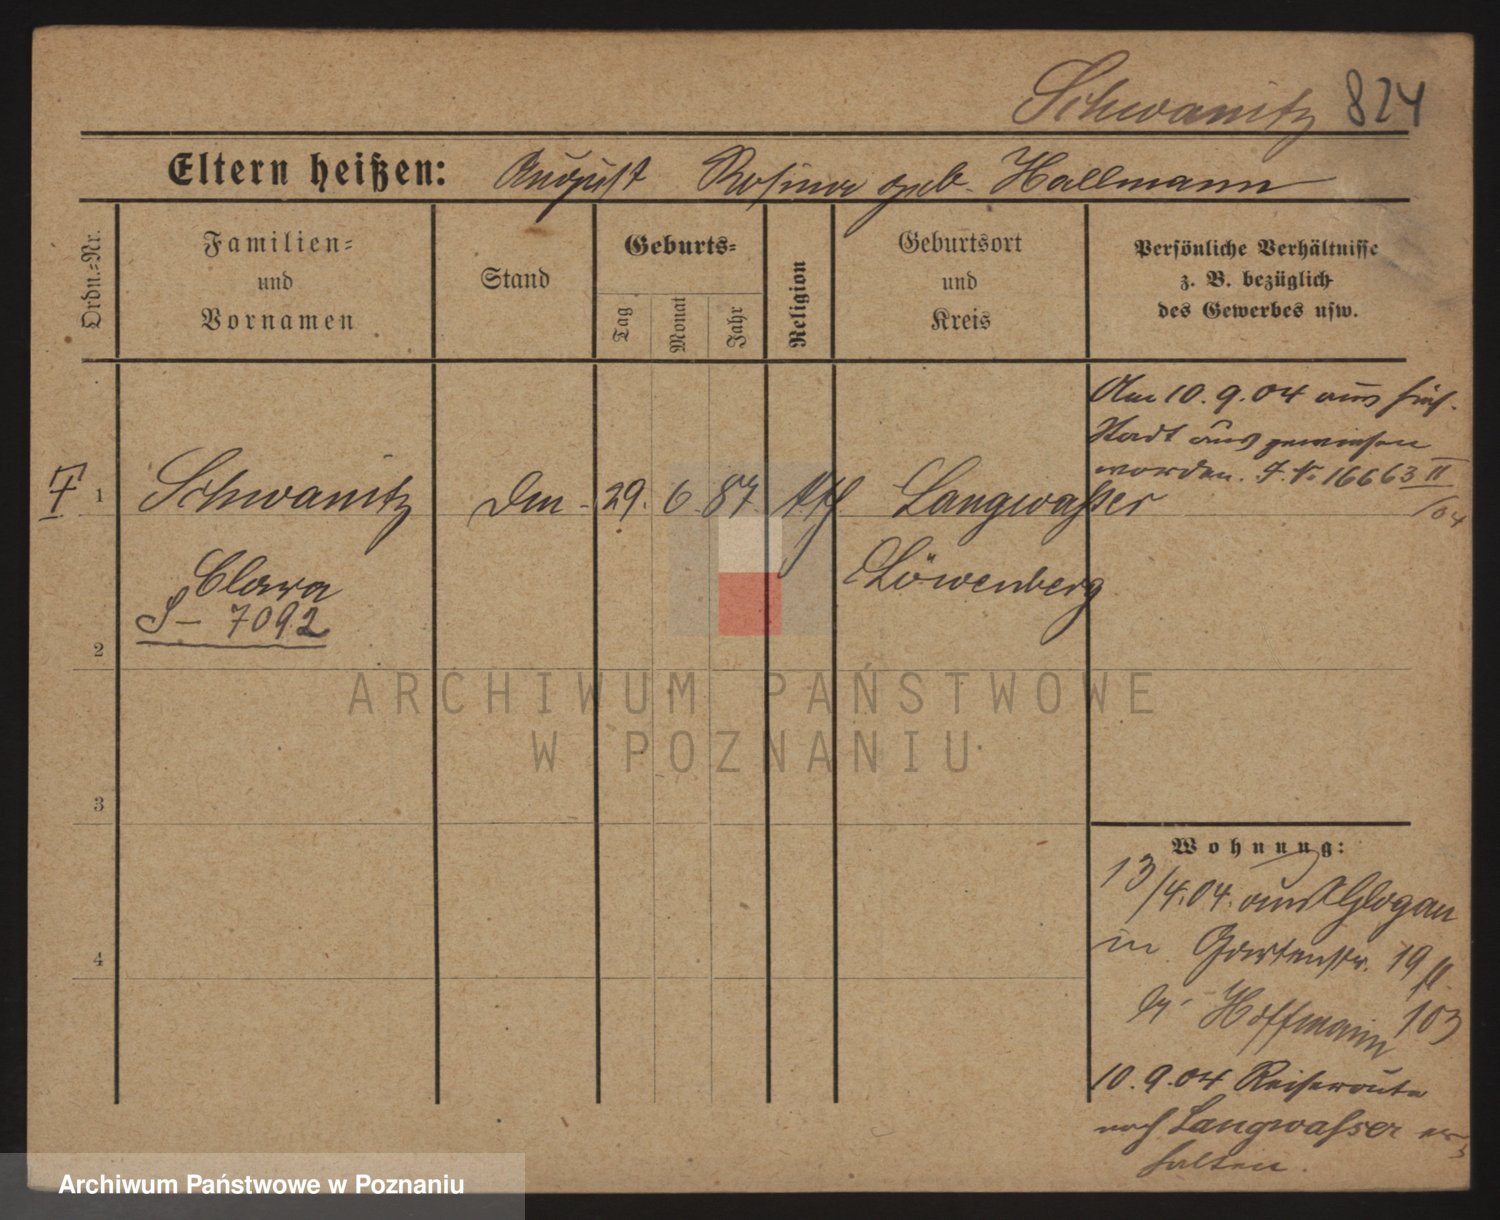 Schwanitz 824
Eltern heißen: August Rosina geb. Hallmann
Ordn.=Nr.
Familien=
und
Vornamen
Stand
Geburts=
Tag
Monat
Jahr
Religion
Geburtsort
und
Kreis
Persönliche Verhältnisse
z. B. bezüglich
des Gewerbes usw.
Am 10. 9. 04 aus hies.
Stadt ausgewiesen
worden. 16663 II
/04
1 Schwanitz 29. 6. 87 kth. Langwasser
Clara Löwenberg
S - 7092
2
3
4
Wohnung:
13/4.04. aus Glogau
in Gartenstr. 19 II
b/ Hoffmann 103
10. 9. 04 Reiseroute
nach Langwasser er-
halten.
ARCHIWUM PAŃSTWOWE
W POZNANIU
Archiwum Państwowe w Poznaniu